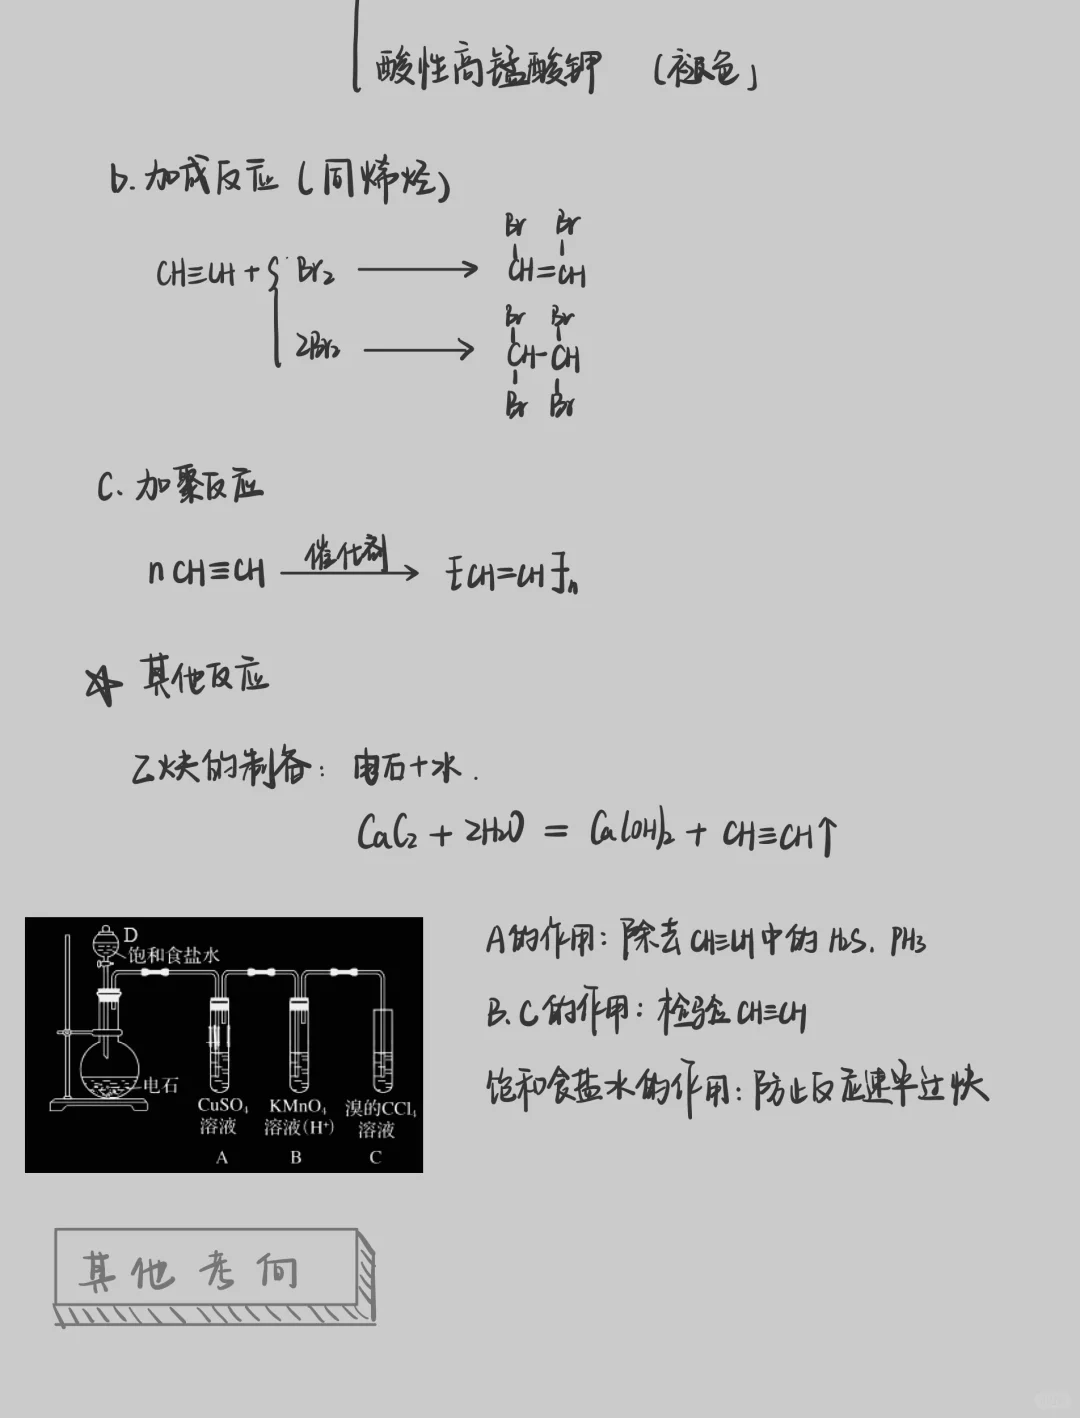 酸性高锰酸钾 (褪色」
b. 加成反应 (同烯烃)
Br Br
CH≡CH + { Br₂ ⟶ CH=CH
Br Br
2Br₂ ⟶ CH-CH
Br Br
C. 加聚反应
n CH≡CH 催化剂⟶ [CH=CH]n
☆ 其他反应
乙炔的制备: 电石+水.
CaC₂ + 2H₂O = Ca(OH)₂ + CH≡CH↑
D
饱和食盐水
电石
CuSO₄ 溶液
KMnO₄ 溶液(H⁺)
溴的CCl₄ 溶液
A B C
A的作用: 除去CH≡CH中的H₂S. PH₃
B. C的作用: 检验CH≡CH
饱和食盐水的作用: 防止反应速率过快
其他考向